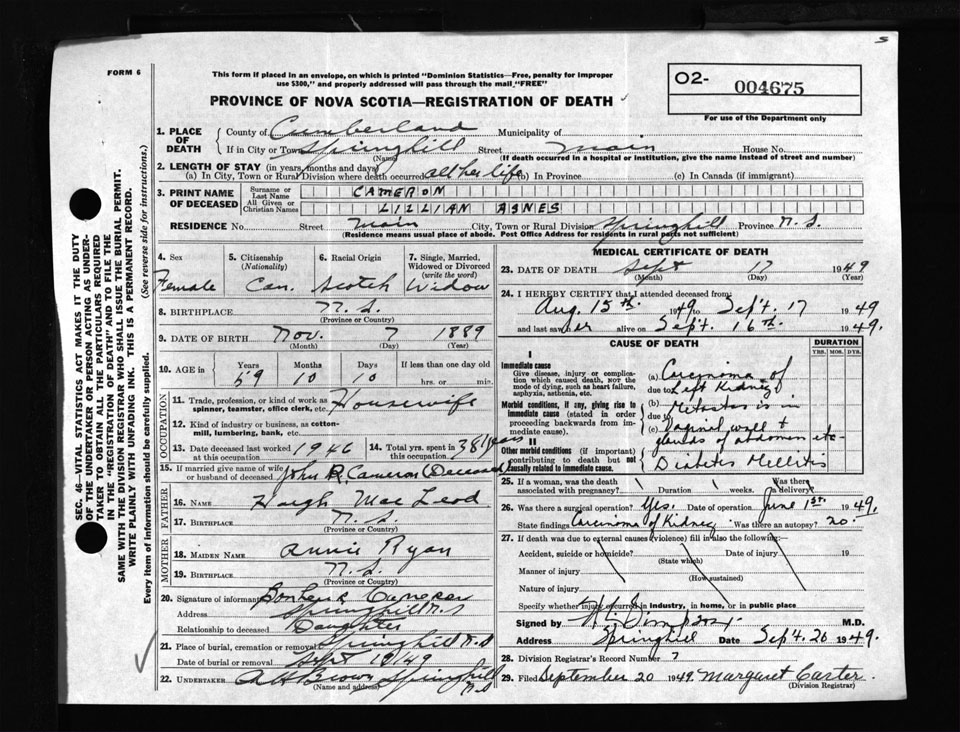 S
FORM 6
This form if placed in an envelope, on which is printed "Dominion Statistics—Free, penalty for improper
use $300," and properly addressed will pass through the mail "FREE"
O2- 004675
For use of the Department only
PROVINCE OF NOVA SCOTIA—REGISTRATION OF DEATH
1. PLACE OF DEATH
County of Cumberland Municipality of
If in City or Town Springhill Street Main House No.
(Name) (If death occurred in a hospital or institution, give the name instead of street and number)
2. LENGTH OF STAY (in years, months and days)
(a) In City, Town or Rural Division where death occurred all her life (b) In Province (c) In Canada (if immigrant)
3. PRINT NAME OF DECEASED
Surname or Last Name CAMERON
All Given or Christian Names LILLIAN AGNES
RESIDENCE No. Street Main City, Town or Rural Division Springhill Province N. S.
(Residence means usual place of abode. Post Office Address for residents in rural parts not sufficient)
4. Sex Female
5. Citizenship (Nationality) Can.
6. Racial Origin Scotch
7. Single, Married, Widowed or Divorced (write the word) Widow
8. BIRTHPLACE N. S.
(Province or Country)
9. DATE OF BIRTH Nov. 7 1889
(Month) (Day) (Year)
10. AGE in Years 59 Months 10 Days 10 If less than one day old hrs. or min.
OCCUPATION
11. Trade, profession, or kind of work as spinner, teamster, office clerk, etc. Housewife
12. Kind of industry or business, as cotton-mill, lumbering, bank, etc.
13. Date deceased last worked at this occupation 1946
14. Total yrs. spent in this occupation 38 years
15. If married give name of wife or husband of deceased John R. Cameron (Deceased)
FATHER
16. Name Hugh Mac Leod
17. Birthplace N. S.
(Province or Country)
MOTHER
18. Maiden Name Annie Ryan
19. Birthplace N. S.
(Province or Country)
20. Signature of informant Cameron
Address Springhill N. S
Relationship to deceased Daughter
21. Place of burial, cremation or removal Springhill N. S
Date of burial or removal Sept 19/49
22. Undertaker A H Brown Springhill N. S
(Name and address)
MEDICAL CERTIFICATE OF DEATH
23. DATE OF DEATH Sept 17 1949
(Month) (Day) (Year)
24. I HEREBY CERTIFY that I attended deceased from:
Aug. 15th. 1949 to Sep't. 17 1949
and last saw her alive on Sep't. 16th. 1949.
CAUSE OF DEATH
DURATION
YRS. MOS. DYS.
I
Immediate cause
Give disease, injury or complication which caused death, NOT the mode of dying, such as heart failure, asphyxia, asthenia, etc.
(a) Carcinoma of
due to Left Kidney
Morbid conditions, if any, giving rise to immediate cause (stated in order proceeding backwards from immediate cause).
(b) Metastisis in
due to
(c) Vaginal wall &
glands of abdomen etc-
II
Other morbid conditions (if important) contributing to death but not causally related to immediate cause.
Diabetes Mellitis
25. If a woman, was the death associated with pregnancy? Duration weeks. Was there delivery?
26. Was there a surgical operation? Yes. Date of operation June 1st. 1949.
State findings Carcinoma of Kidney Was there an autopsy? no.
27. If death was due to external causes (violence) fill in also the following:—
Accident, suicide or homicide? Date of injury 19
(State which)
Manner of injury
(How sustained)
Nature of injury
Specify whether injury occurred in industry, in home, or in public place
Signed by Simpson M.D.
Address Springhill Date Sep't. 20 1949.
28. Division Registrar's Record Number 7
29. Filed September 20 1949 Margaret Carter.
(Division Registrar)
SEC. 46—VITAL STATISTICS ACT MAKES IT THE DUTY
OF THE UNDERTAKER OR PERSON ACTING AS UNDER-
TAKER TO OBTAIN ALL THE PARTICULARS REQUIRED
IN THE "REGISTRATION OF DEATH" AND TO FILE THE
SAME WITH THE DIVISION REGISTRAR WHO SHALL ISSUE THE BURIAL PERMIT.
WRITE PLAINLY WITH UNFADING INK. THIS IS A PERMANENT RECORD.
Every item of information should be carefully supplied. (See reverse side for instructions.)